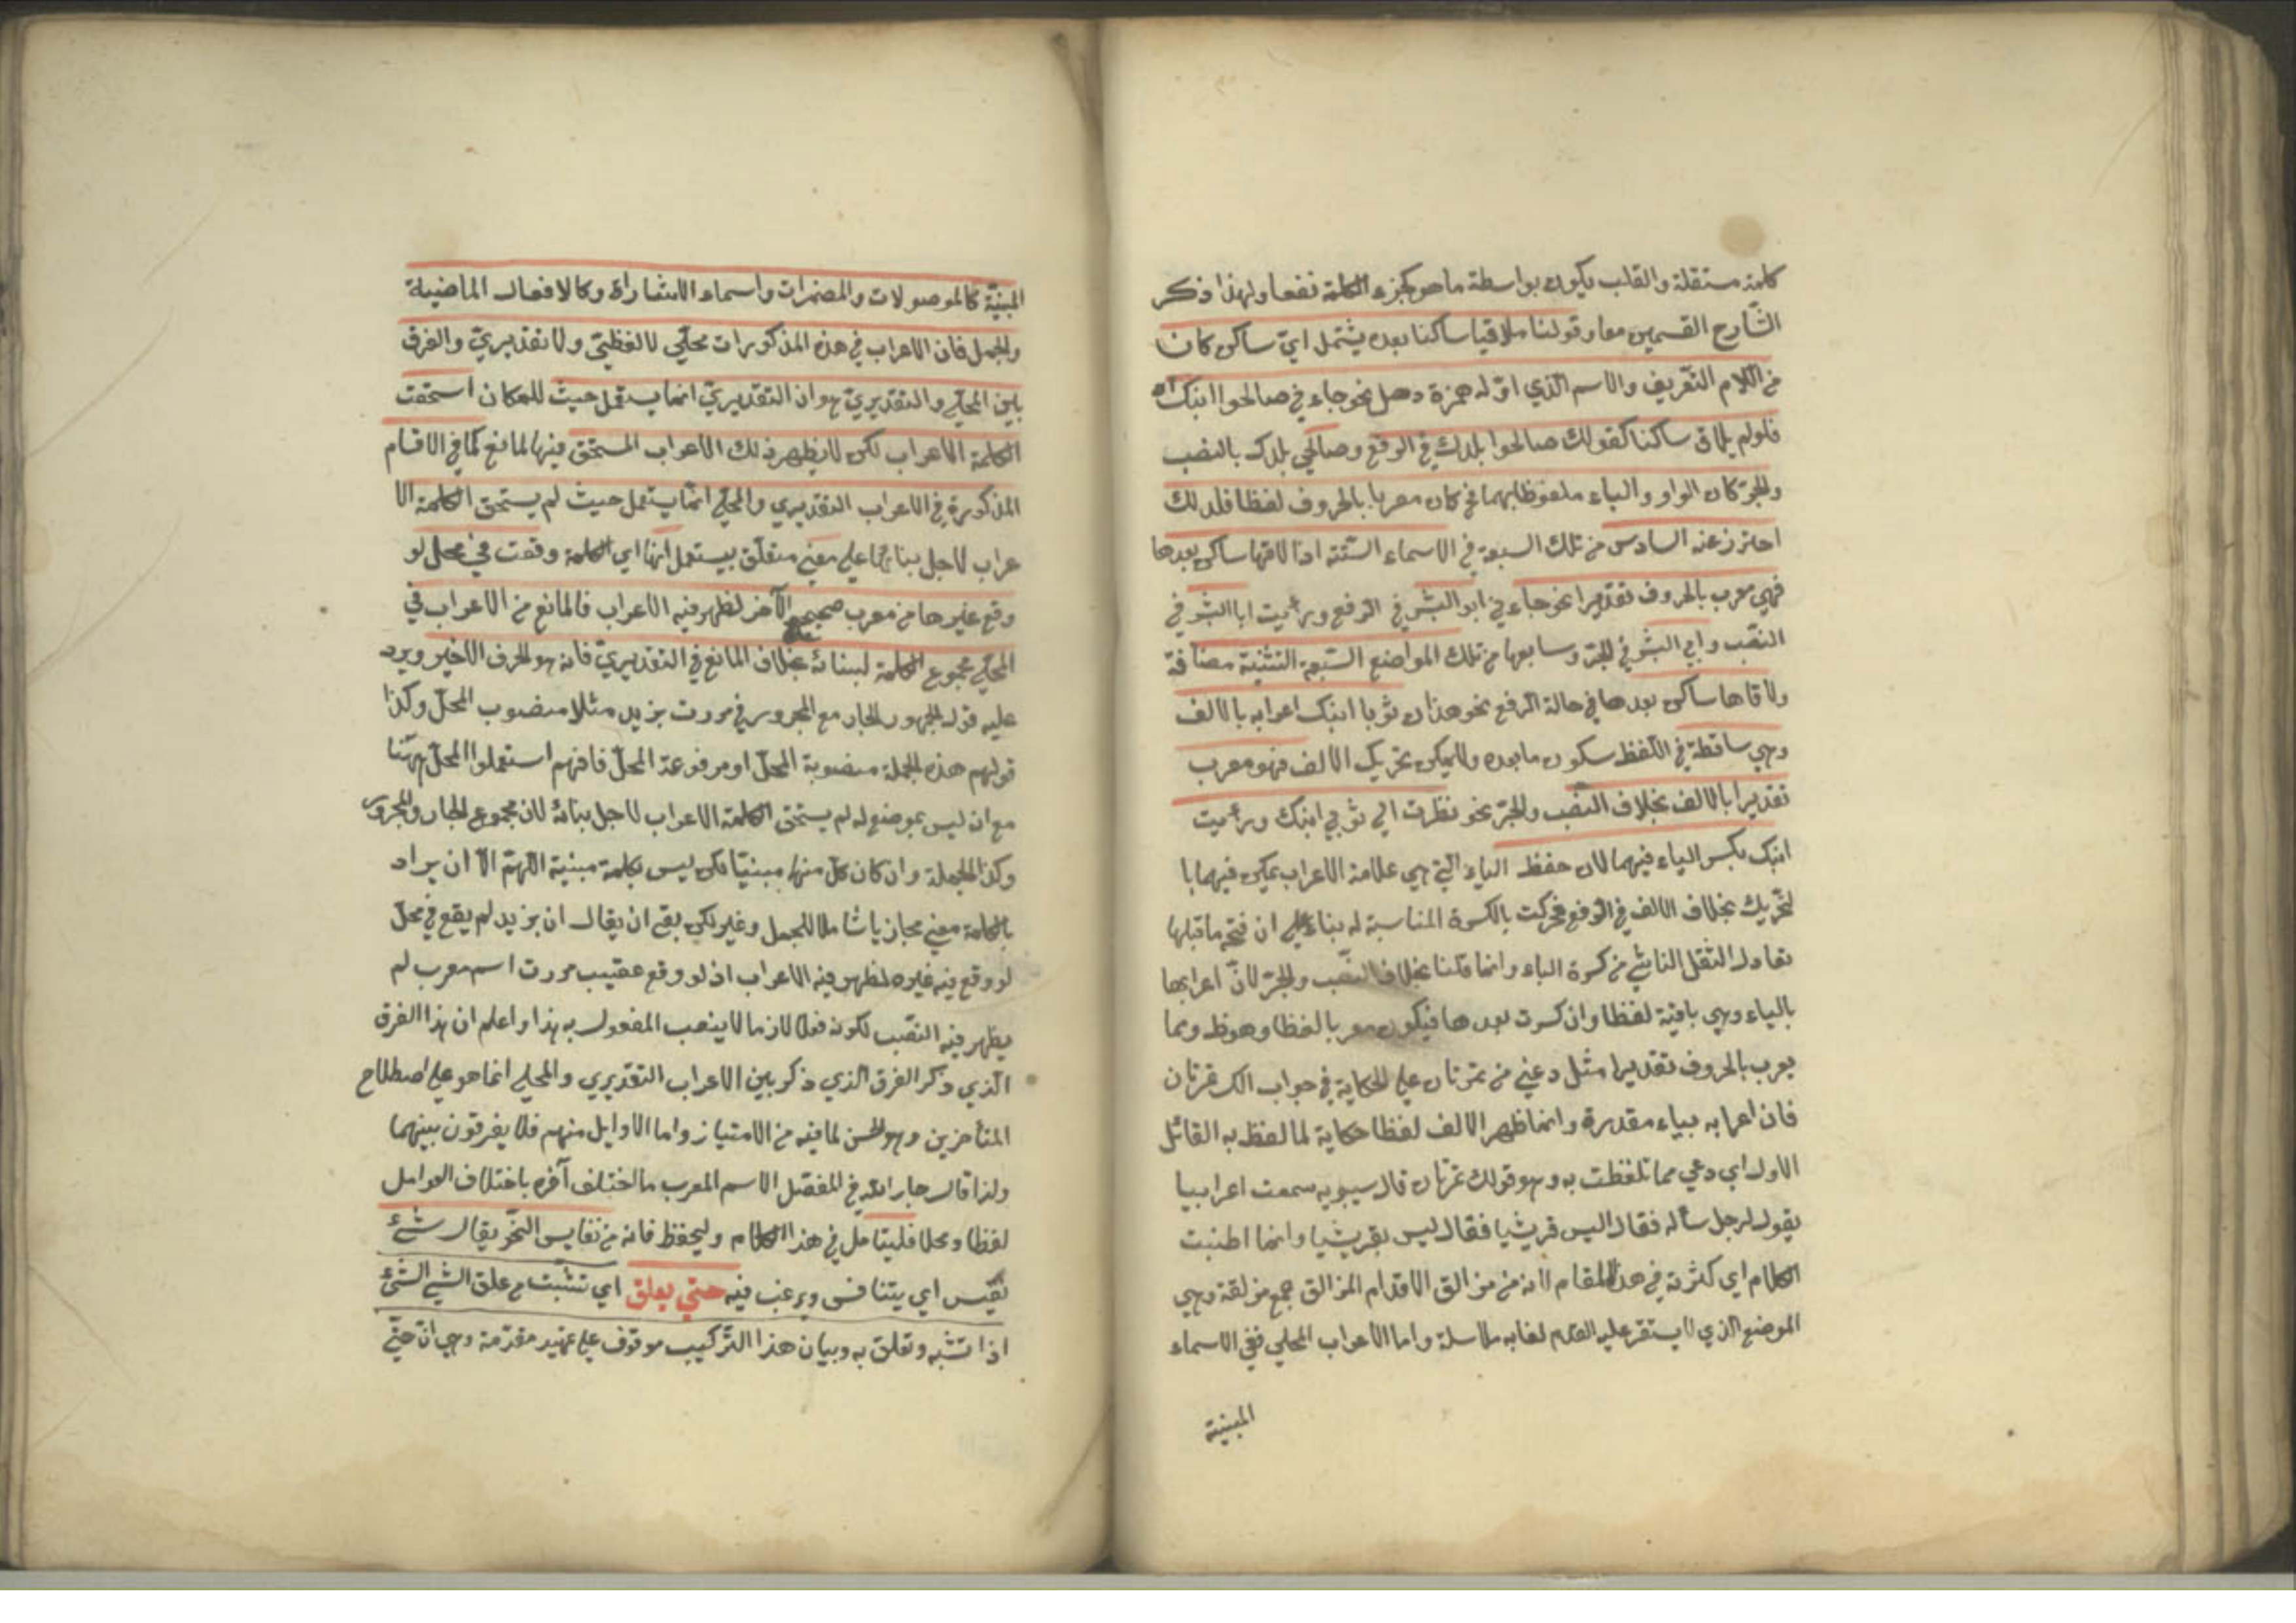 كلمة مستقلة والقلب يكون بواسطة ما هو كجزء الكلمة نفعا ولهذا ذكر
الشارح القسمين معا وقولنا ملاقيا ساكنا بعده يشتمل اي ساكن كان
من اللام التعريف والاسم الذي اوله همزة وصل نحو جاءني صالحوا ابنك
فلو لم يلاق ساكنا كقولك صالحوا بلدك في الرفع وصالحي بلدك بالنصب
والجر كان الواو والياء ملفوظا بهما فح كان معربا بالحروف لفظا فلذلك
احترز عنه السادس من تلك السبعة في الاسماء الستة اذا لاقها ساكن بعدها
فهي معرب بالحروف تقديرا نحو جاءني ابو البشر في الرفع ورأيت ابا البشر في
النصب وابي البشر في الجر وسابعها من تلك المواضع السبعة التثنية مضافة
ولاقاها ساكن بعدها في حالة الرفع نحو هذان ثوبا ابنك اعرابه بالالف
وهي ساقطة في اللفظ سكون ما بعده ولا يمكن تحريك الالف فهو معرب
تقديرا بالالف بخلاف النصب والجر نحو نظرت الى ثوبي ابنك ورأيت
ابنك بكسر الياء فيهما لان حفظ الياء التي هي علامة الاعراب يمكن فيهما با
لتحريك بخلاف الالف في الرفع فحركت بالكسرة المناسبة له بناء على ان فتحة ما قبلها
تعادل الثقل الناشي من كسرة الياء وانما قلنا بخلاف النصب والجر لان اعرابها
بالياء وهي باقية لفظا وان كسرت بعدها فيكون معربا لفظا وهو ظ ومما
يعرب بالحروف تقديرا مثل دعني من تمرتان على الحكاية في جواب الك تمرتان
فان اعرابه بياء مقدرة وانما ظهر الالف لفظا حكاية لما لفظ به القائل
الاول اي دعني مما تلفظت به وهو قولك تمرتان قال سيبويه سمعت اعرابيا
يقول لرجل سأله فقال اليس قريشيا فقال ليس بقريشيا وانما اطنبت
الكلام اي كثرته في هذا المقام لانه من مزالق الاقدام المزالق جمع مزلقة وهي
الموضع الذي لا يستقر عليه القدم لغاية ملاسلة واما الاعراب المحلي ففي الاسماء
المبنية
المبنية كالموصولات والمضمرات واسماء الاشارة وكالافعال الماضية
والجمل فان الاعراب في هذه المذكورات محلي لا لفظي ولا تقديري والفرق
بين المحلي والتقديري هو ان التقديري انما يستعمل حيث للمكان استحقت
الكلمة الاعراب لكن لا يظهر ذلك الاعراب المستحق فيها لمانع كما في الاقسام
المذكورة في الاعراب التقديري والمحلي انما يستعمل حيث لم يستحق الكلمة الا
عراب لاجل بنائها على معنى متعلق بيستعمل انها اي الكلمة وقعت في محل لو
وقع غيرها من معرب صحيح الآخر لظهر فيه الاعراب فالمانع من الاعراب في
المحلي مجموع الكلمة لبنائه بخلاف المانع في التقديري فانه هو الحرف الاخير ويرد
عليه قول الجمهور الجار مع المجرور في مررت بزيد مثلا منصوب المحل وكذا
قولهم هذه الجملة منصوبة المحل او مرفوعة المحل فانهم استعملوا المحل ههنا
مع ان ليس بموضع له لم يستحق الكلمة الاعراب لاجل بنائه لان مجموع الجار والمجرور
وكذا الجملة وان كان كل منها مبنيا لكن ليس بكلمة مبنية اللهم الا ان يراد
بالكلمة معنى مجازيا شاملا للجمل وغير لكن بقي ان يقال ان بزيد لم يقع في محل
لو وقع فيه غيره لظهر فيه الاعراب اذ لو وقع عقيب مررت اسم معرب لم
يظهر فيه النصب لكونه فعلا لازما لا ينصب المفعول به هذا واعلم ان هذا الفرق
الذي ذكر الفرق الذي ذكر بين الاعراب التقديري والمحلي انما هو على اصطلاح
المتأخرين وهو الحسن لما فيه من الامتياز واما الاوايل منهم فلا يفرقون بينهما
ولذا قال جار الله في المفصل الاسم المعرب ما اختلف آخره باختلاف العوامل
لفظا ومحلا فليتأمل في هذا الكلام وليحفظ فانه من نفايس النحو يقال شئ
نفيس اي يتنافس ويرغب فيه حتى يعلق اي تشبث من علق الشئ الشئ
اذا تشبه وتعلق به وبيان هذا التركيب موقوف على تمهيد مقدمة وهي ان حتى